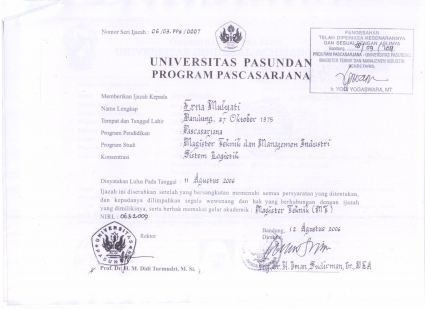 Nomor Seri Ijazah : 06/03.PPs/0007
PENGESAHAN
TELAH DIPERIKSA KEBENARANNYA
DAN SESUAI DENGAN ASLINYA
Bandung,
PROGRAM PASCASARJANA - UNIVERSITAS PASUNDAN
MAGISTER TEKNIK DAN MANAJEMEN INDUSTRI
Ir. YOGI YOGASWARA, MT
UNIVERSITAS PASUNDAN
PROGRAM PASCASARJANA
Memberikan Ijazah Kepada
Nama Lengkap : Erna Mulyati
Tempat dan Tanggal Lahir : Bandung, 27 Oktober 1975
Program Pendidikan : Pascasarjana
Program Studi : Magister Teknik dan Manajemen Industri
Konsentrasi : Sistem Logistik
Dinyatakan Lulus Pada Tanggal : 11 Agustus 2006
Ijazah ini diserahkan setelah yang bersangkutan memenuhi semua persyaratan yang ditentukan,
dan kepadanya dilimpahkan segala wewenang dan hak yang berhubungan dengan ijazah
yang dimilikinya, serta berhak memakai gelar akademik : Magister Teknik (MT)
NIRL : 0632009
Bandung, 12 Agustus 2006
Rektor
Direktur
Prof. Dr. H. M. Didi Turmudzi, M. Si.
Prof. Dr. H. Iman Sudirman, Ir., DEA